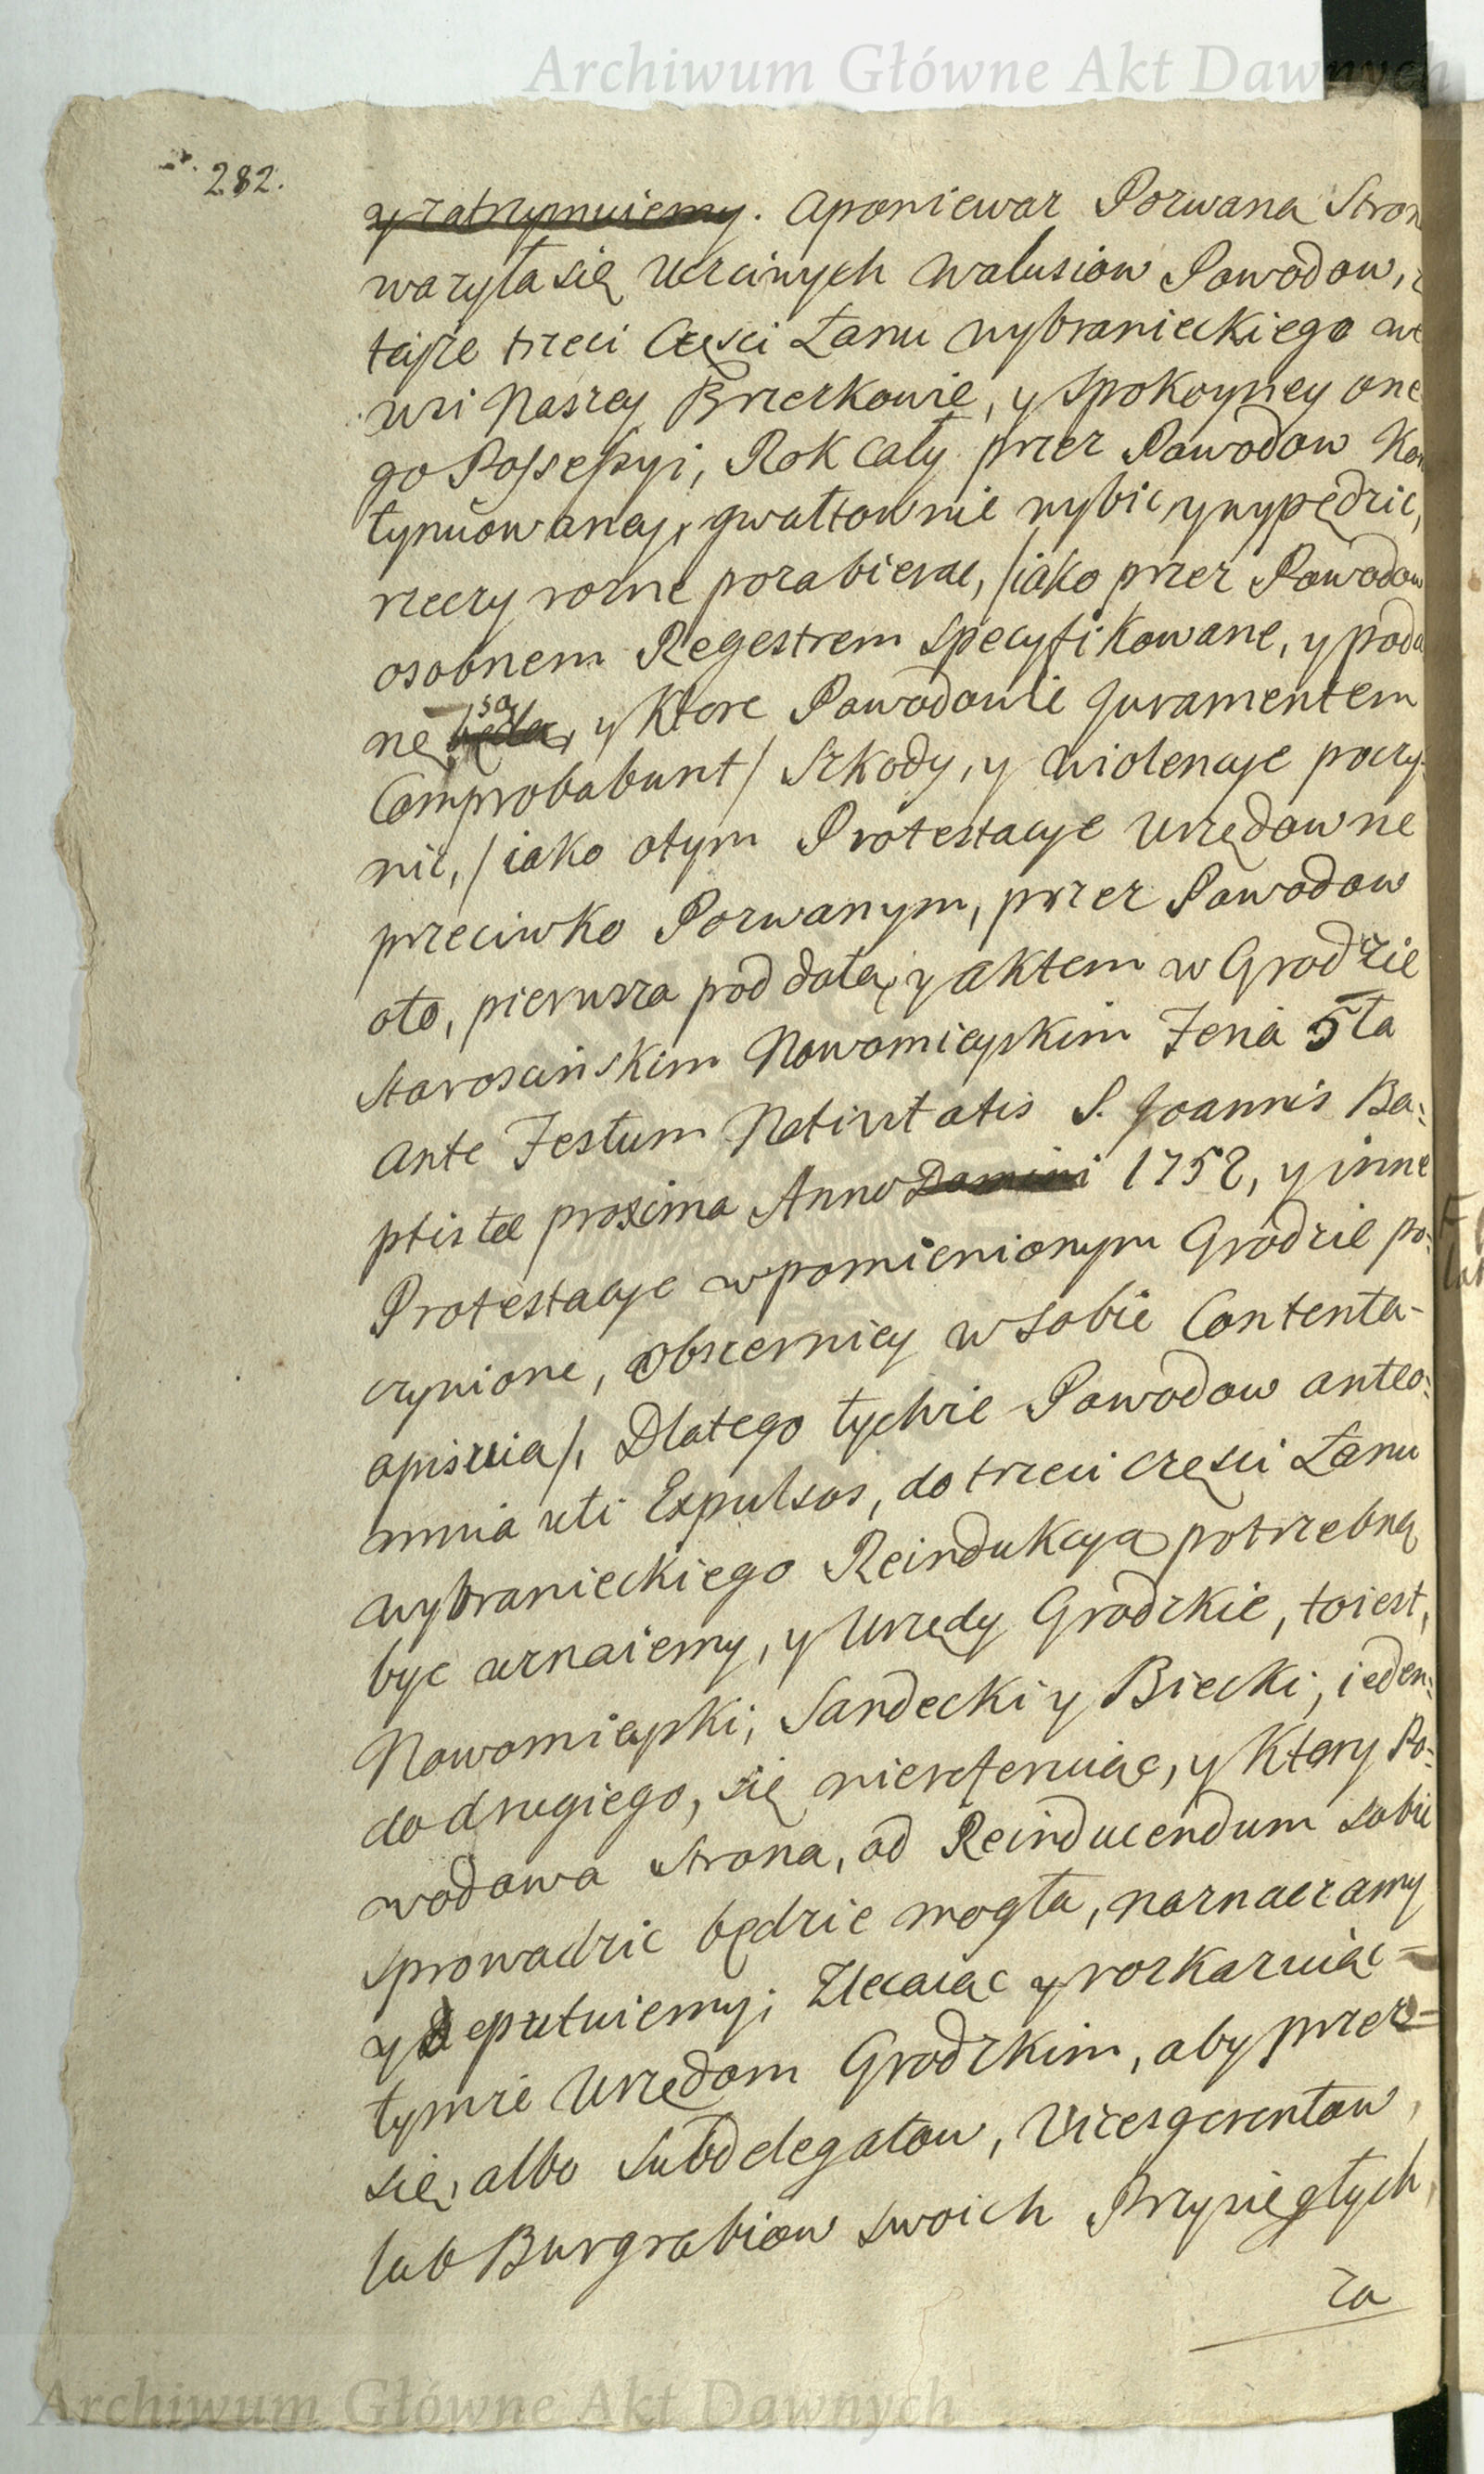 Archiwum Główne Akt Dawnych
282.
y zatrzymuiemy. Aponiewaz Pozwana Stron
wazyła się Uczciwych Walusiow Powodow, z
teyże trzeci Części Łanu wybranieckiego we
wsi Naszey Brzezkowie, y spokoyney one
go Possessyi, Rok Cały przez Powodow Kon
tynuowaney, gwałtownie wybic y wypędzic,
rzeczy rozne pozabierac, /iako przez Powodow
osobnem Regestrem specyfikowane, y poda
ne będą, są y Ktore Powodowie Juramentem
Comprobabunt/ Szkody, y wiolencye poczy-
nic, /iako otym Protestacye Urzędowne
przeciwko Pozwanym, przez Powodow
oto, pierwsza pod datą, y aktem w Grodzie
Staroscinskim Nowomieyskim Feria 5ta
ante Festum Nativitatis S. Joannis Ba-
ptistæ proxima Anno Domini 1752, y inne
Protestacye wpomienionym Grodzie po-
czynione, obszerniey w sobie Contenta-
opisuia/, Dlatego tychże Powodow anteo-
mnia uti Expulsos, do trzeci części Łanu
wybranieckiego Reindukcyą potrzebną
byc uznaiemy, y Urzędy Grodzkie, toiest,
Nowomieyski, Sandecki y Biecki, ieden-
do drugiego, się niereferuiąc, y Ktory Po-
wodowa Strona, ad Reinducendum sobie
sprowadzic będzie mogła, naznaczamy
y deputuiemy; Zlecaiąc y rozkazuiąc-
tymże Urzędom Grodzkim, aby przez-
się, albo Subdelegatow, Vicesgerentow,
lub Burgrabiow swoich Przysięgłych,
za
Archiwum Główne Akt Dawnych